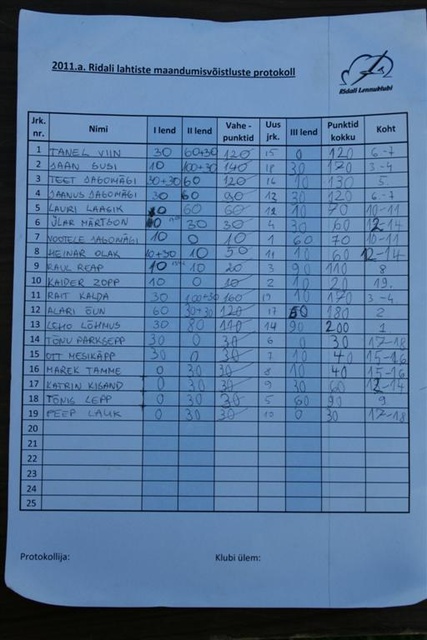 2011.a. Ridali lahtiste maandumisvõistluste protokoll
Ridali Lennuklubi
Jrk. nr. Nimi I lend II lend Vahe-punktid Uus jrk. III lend Punktid kokku Koht
1 TANEL VIIN 30 60+30 120 15 0 120 6-7
2 JAAN SUSI 10 100+30 140 18 30 170 3-4
3 TEET JAGOMÄGI 30+30 60 120 16 10 130 5.
4 JAANUS JAGOMÄGI 30 60 90 13 30 120 6-7
5 LAURI LAASIK 60 60 12 10 70 10-11
6 ÜLAR MÄRTSON 30 30 4 30 60 12-14
7 VOOTELE JAGOMÄGI 10 0 10 1 60 70 10-11
8 HEINAR OLAK 10+30 10 50 11 10 60 12-14
9 RAUL REAP 10 10 20 3 90 110 8
10 KAIDER ZOPP 10 0 10 2 10 20 19.
11 RAIT KALDA 30 100+30 160 19 10 170 3-4
12 ALARI EUN 60 30+30 120 17 60 180 2
13 LEHO LÕHMUS 30 80 110 14 90 200 1
14 TÕNU PARKSEPP 30 0 30 6 0 30 17-18
15 OTT MESIKÄPP 30 0 30 7 10 40 15-16
16 MAREK TAMME 0 30 30 8 10 40 15-16
17 KATRIN KIGAND 0 30 30 9 30 60 12-14
18 TÕNIS LEPP 0 30 30 5 60 90 9
19 PEEP LAUK 0 30 30 10 0 30 17-18
20
21
22
23
24
25
Protokollija: Klubi ülem: